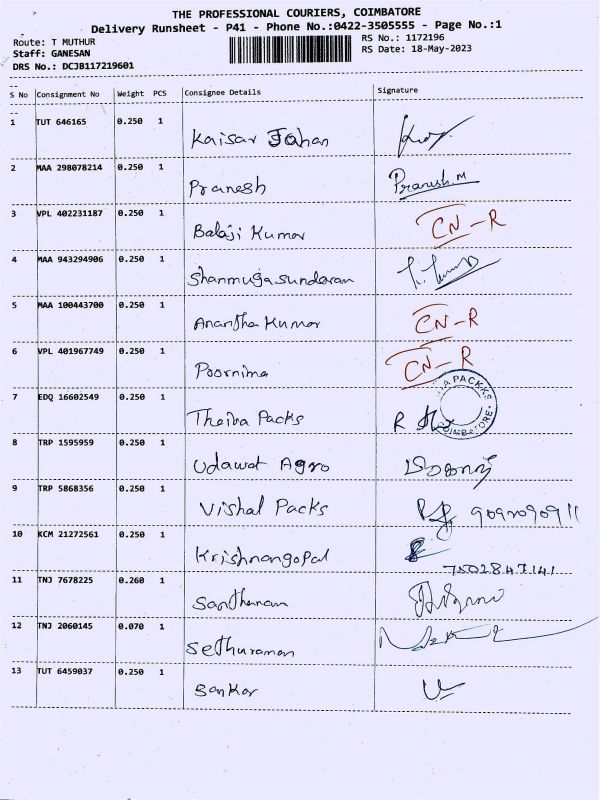 THE PROFESSIONAL COURIERS, COIMBATORE
Delivery Runsheet - P41 - Phone No.:0422-3505555 - Page No.:1
Route: T MUTHUR
RS No.: 1172196
Staff: GANESAN
RS Date: 18-May-2023
DRS No.: DCJB117219601
S No Consignment No Weight PCS Consignee Details Signature
1 TUT 646165 0.250 1 Kaisar Jahan
2 MAA 298078214 0.250 1 Pranesh Pranesh.M
3 VPL 402231187 0.250 1 Balaji Kumar CN-R
4 MAA 943294906 0.250 1 Shanmugasundaram
5 MAA 100443700 0.250 1 Anantha Kumar CN-R
6 VPL 401967749 0.250 1 Poornima CN-R
7 EDQ 16602549 0.250 1 Theiva Packs R
PACKKS
COIMBATORE
8 TRP 1595959 0.250 1 Udawat Agro
9 TRP 5868356 0.250 1 Vishal Packs 9092090911
10 KCM 21272561 0.250 1 Krishnangopal
7502847141
11 TNJ 7678225 0.260 1 Santhanam
12 TNJ 2060145 0.070 1 Sethuraman
13 TUT 6459037 0.250 1 Sankar